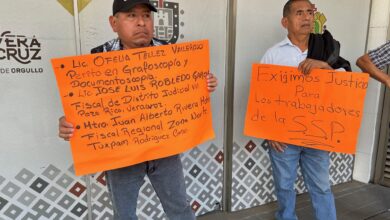 VERA
CRUZ
DE ORGULLO
Lic Ofelia Tellez Vallerazo
Perito en Grafoscopia y
Documentoscopia
Lic JOSE LUIS ROBLEDO
Fiscal de Distrito Judicial VII
Poza Rica, Veracruz.
Mtro. Juan Alberto Rivera
Fiscal Regional Zona Norte
Tuxpam Rodriguez Cano
Exigimos Justicia
Para
Los trabajadores
de la S.S.P.